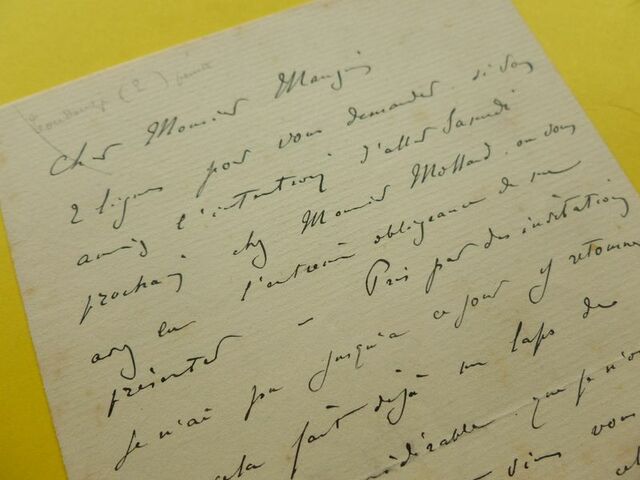 (2)
Cher Monsieur Mangin
2 lignes pour vous demander, si vous
avez l'intention d'aller Samedi
prochain chez Monsieur Mollard, ou vous
avez eu l'extreme obligeance de me
présenter – Pris par des invitations
je n'ai pu jusqu'a ce jour y retourner
cela fait déjà un laps de
que je n'o
vous